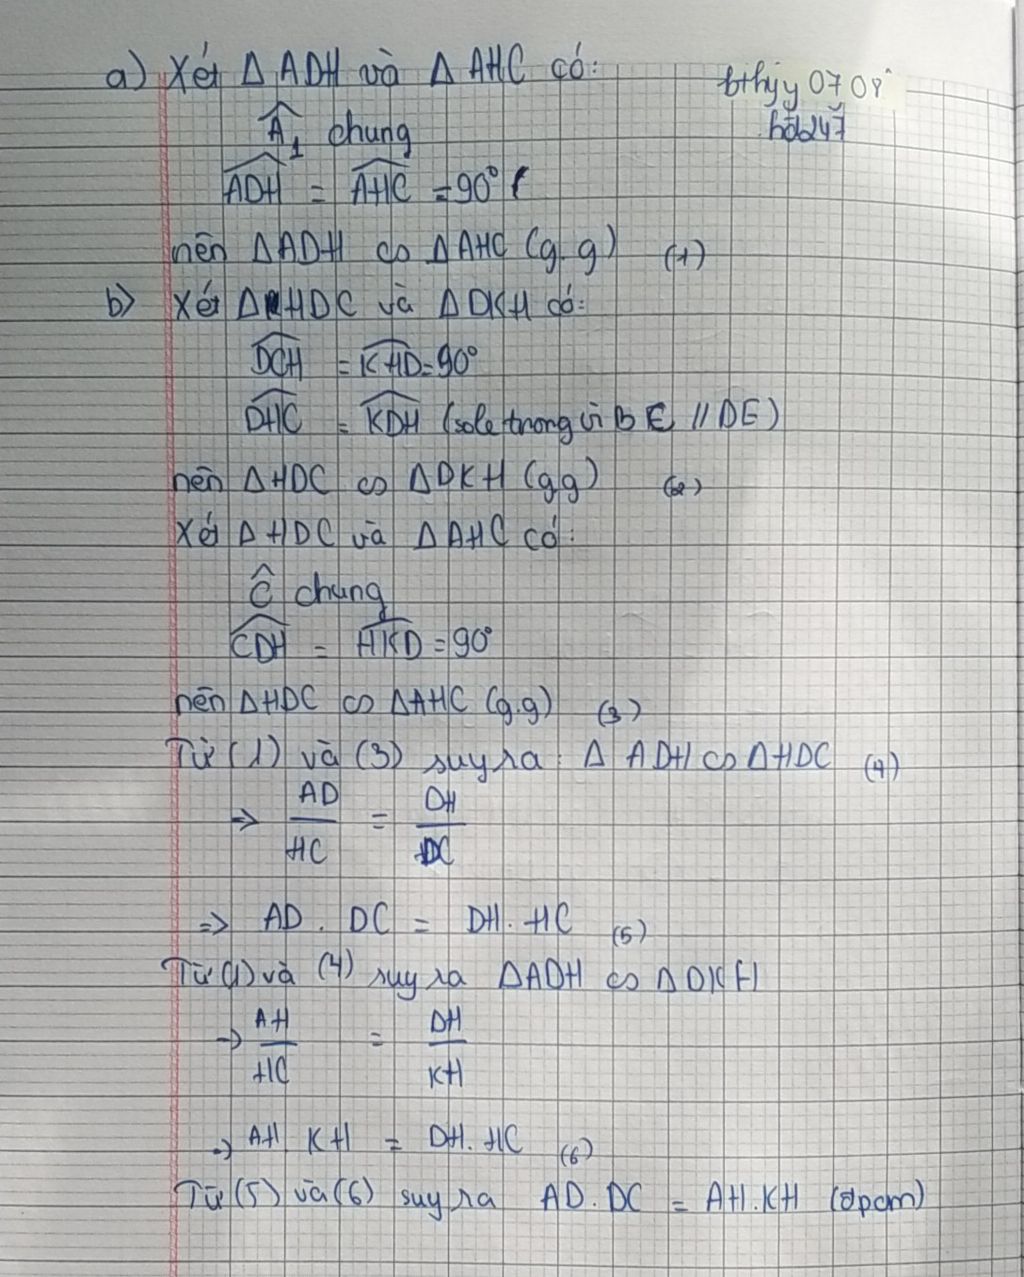 a) Xét Δ ADH và Δ AHC có:
bthjyy 07 08
hod247
Â₁ chung
ADH = AHC = 90°
nên ΔADH ∽ ΔAHC (g.g) (1)
b) Xét ΔHDC và ΔDKH có:
DCH = KHD = 90°
DHC = KDH (sole trong vì BC // DE)
nên ΔHDC ∽ ΔDKH (gg) (2)
Xét ΔHDC và ΔAHC có:
Ĉ chung
CDH = HKD = 90°
nên ΔHDC ∽ ΔAHC (g.g) (3)
Từ (1) và (3) suy ra : Δ ADH ∽ ΔHDC (4)
=> AD/HC = DH/DC
=> AD . DC = DH. HC (5)
Từ (1) và (4) suy ra ΔADH ∽ ΔDKH
→ AH/HC = DH/KH
→ AH KH = DH. HC (6)
Từ (5) và (6) suy ra AD.DC = AH.KH (đpcm)